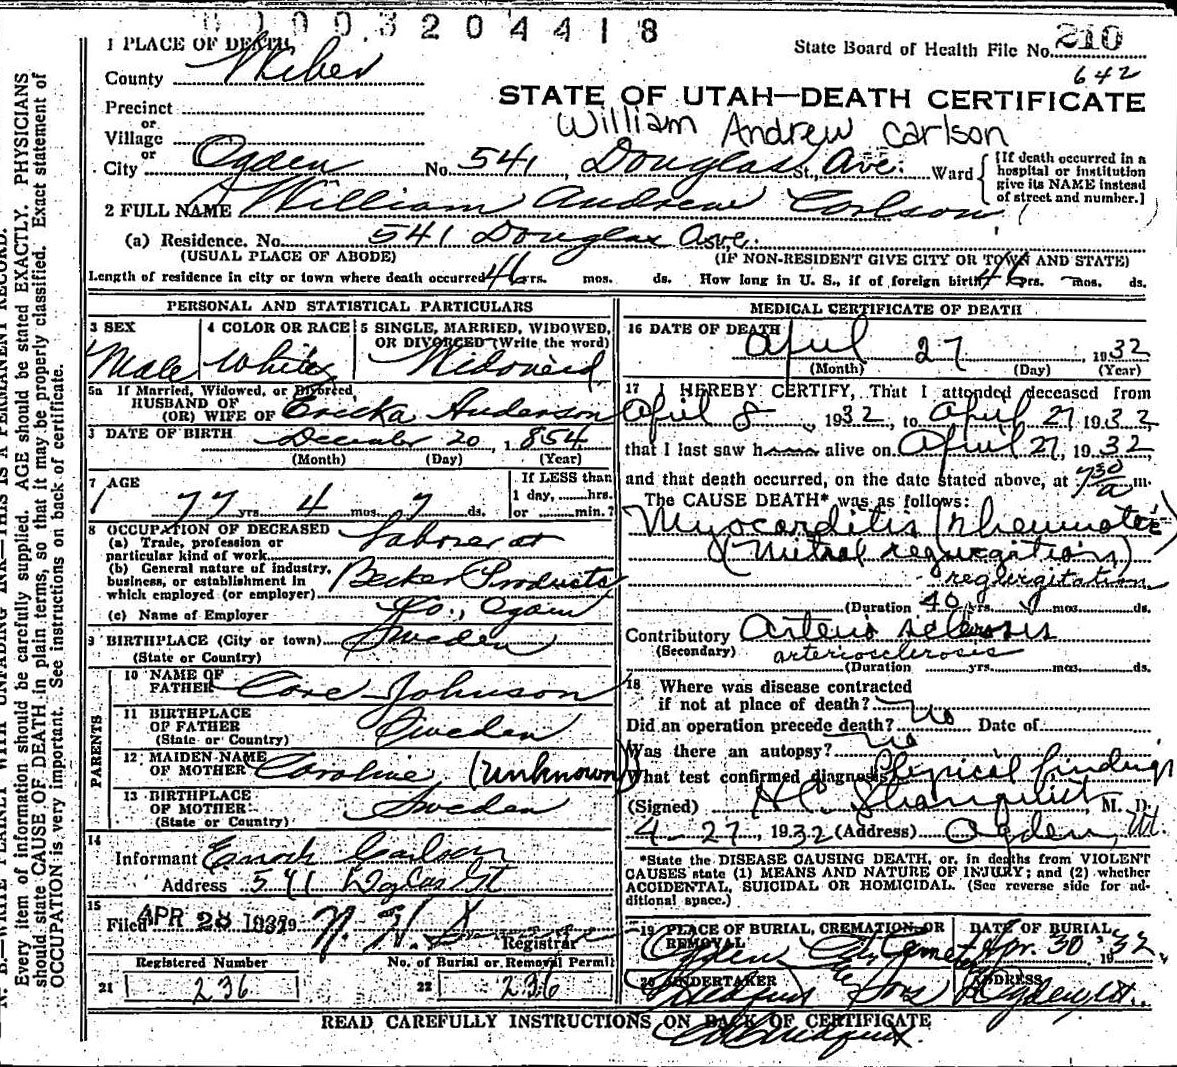 0003204418
1 PLACE OF DEATH, State Board of Health File No. 210
County Weber 642
Precinct
or
Village
or
STATE OF UTAH—DEATH CERTIFICATE
William Andrew Carlson
City Ogden No. 541, Douglas St., Ave. Ward
[If death occurred in a hospital or institution give its NAME instead of street and number.]
2 FULL NAME William Andrew Carlson
(a) Residence. No. 541 Douglas Ave.
(USUAL PLACE OF ABODE) (IF NON-RESIDENT GIVE CITY OR TOWN AND STATE)
Length of residence in city or town where death occurred 46 yrs. mos. ds. How long in U. S., if of foreign birth 46 yrs. mos. ds.
PERSONAL AND STATISTICAL PARTICULARS
3 SEX
Male
4 COLOR OR RACE
White
5 SINGLE, MARRIED, WIDOWED, OR DIVORCED (Write the word)
Widowed
5a If Married, Widowed, or Divorced,
HUSBAND OF
(OR) WIFE OF Ericka Anderson
DATE OF BIRTH December 20, 1854
(Month) (Day) (Year)
7 AGE
77 yrs. 4 mos. 7 ds.
If LESS than
1 day, hrs.
or min.?
8 OCCUPATION OF DECEASED
(a) Trade, profession or
particular kind of work Laborer at
(b) General nature of industry,
business, or establishment in
which employed (or employer) Becker Products
(c) Name of Employer Co., Ogden
9 BIRTHPLACE (City or town) Sweden
(State or Country)
PARENTS
10 NAME OF
FATHER Johnson
11 BIRTHPLACE
OF FATHER Sweden
(State or Country)
12 MAIDEN NAME
OF MOTHER Caroline (unknown)
13 BIRTHPLACE
OF MOTHER Sweden
(State or Country)
14
Informant Enoch Carlson
Address 541 Douglas St
15
Filed APR 28 1932 N. H. Registrar
Registered Number No. of Burial or Removal Permit
21 236 22 236
MEDICAL CERTIFICATE OF DEATH
16 DATE OF DEATH
April 27, 1932
(Month) (Day) (Year)
17 I HEREBY CERTIFY, That I attended deceased from
April 8, 1932, to April 27 1932
that I last saw h alive on April 27, 1932
and that death occurred, on the date stated above, at 7 30 a m.
The CAUSE DEATH* was as follows:
Myocarditis (Rheumatic)
(Mitral regurgitation)
regurgitation
(Duration 40 yrs. mos. ds.
Contributory Arterio sclerosis
(Secondary) arteriosclerosis
(Duration yrs. mos. ds.
18 Where was disease contracted
if not at place of death?
Did an operation precede death? No Date of
Was there an autopsy? No
What test confirmed diagnosis Physical findings
(Signed) Stranquist M. D.
4-27, 1932 (Address) Ogden, Ut.
*State the DISEASE CAUSING DEATH, or, in deaths from VIOLENT
CAUSES state (1) MEANS AND NATURE OF INJURY; and (2) whether
ACCIDENTAL, SUICIDAL OR HOMICIDAL. (See reverse side for additional space.)
19 PLACE OF BURIAL, CREMATION, OR REMOVAL
Ogden City Cemetery
DATE OF BURIAL
Apr. 30 1932
20 UNDERTAKER
Sons
ADDRESS
Ogden, Ut.
READ CAREFULLY INSTRUCTIONS ON BACK OF CERTIFICATE
N. B.—WRITE PLAINLY WITH UNFADING INK—THIS IS A PERMANENT RECORD.
Every item of information should be carefully supplied. AGE should be stated EXACTLY. PHYSICIANS
should state CAUSE OF DEATH in plain terms, so that it may be properly classified. Exact statement of
OCCUPATION is very important. See instructions on back of certificate.